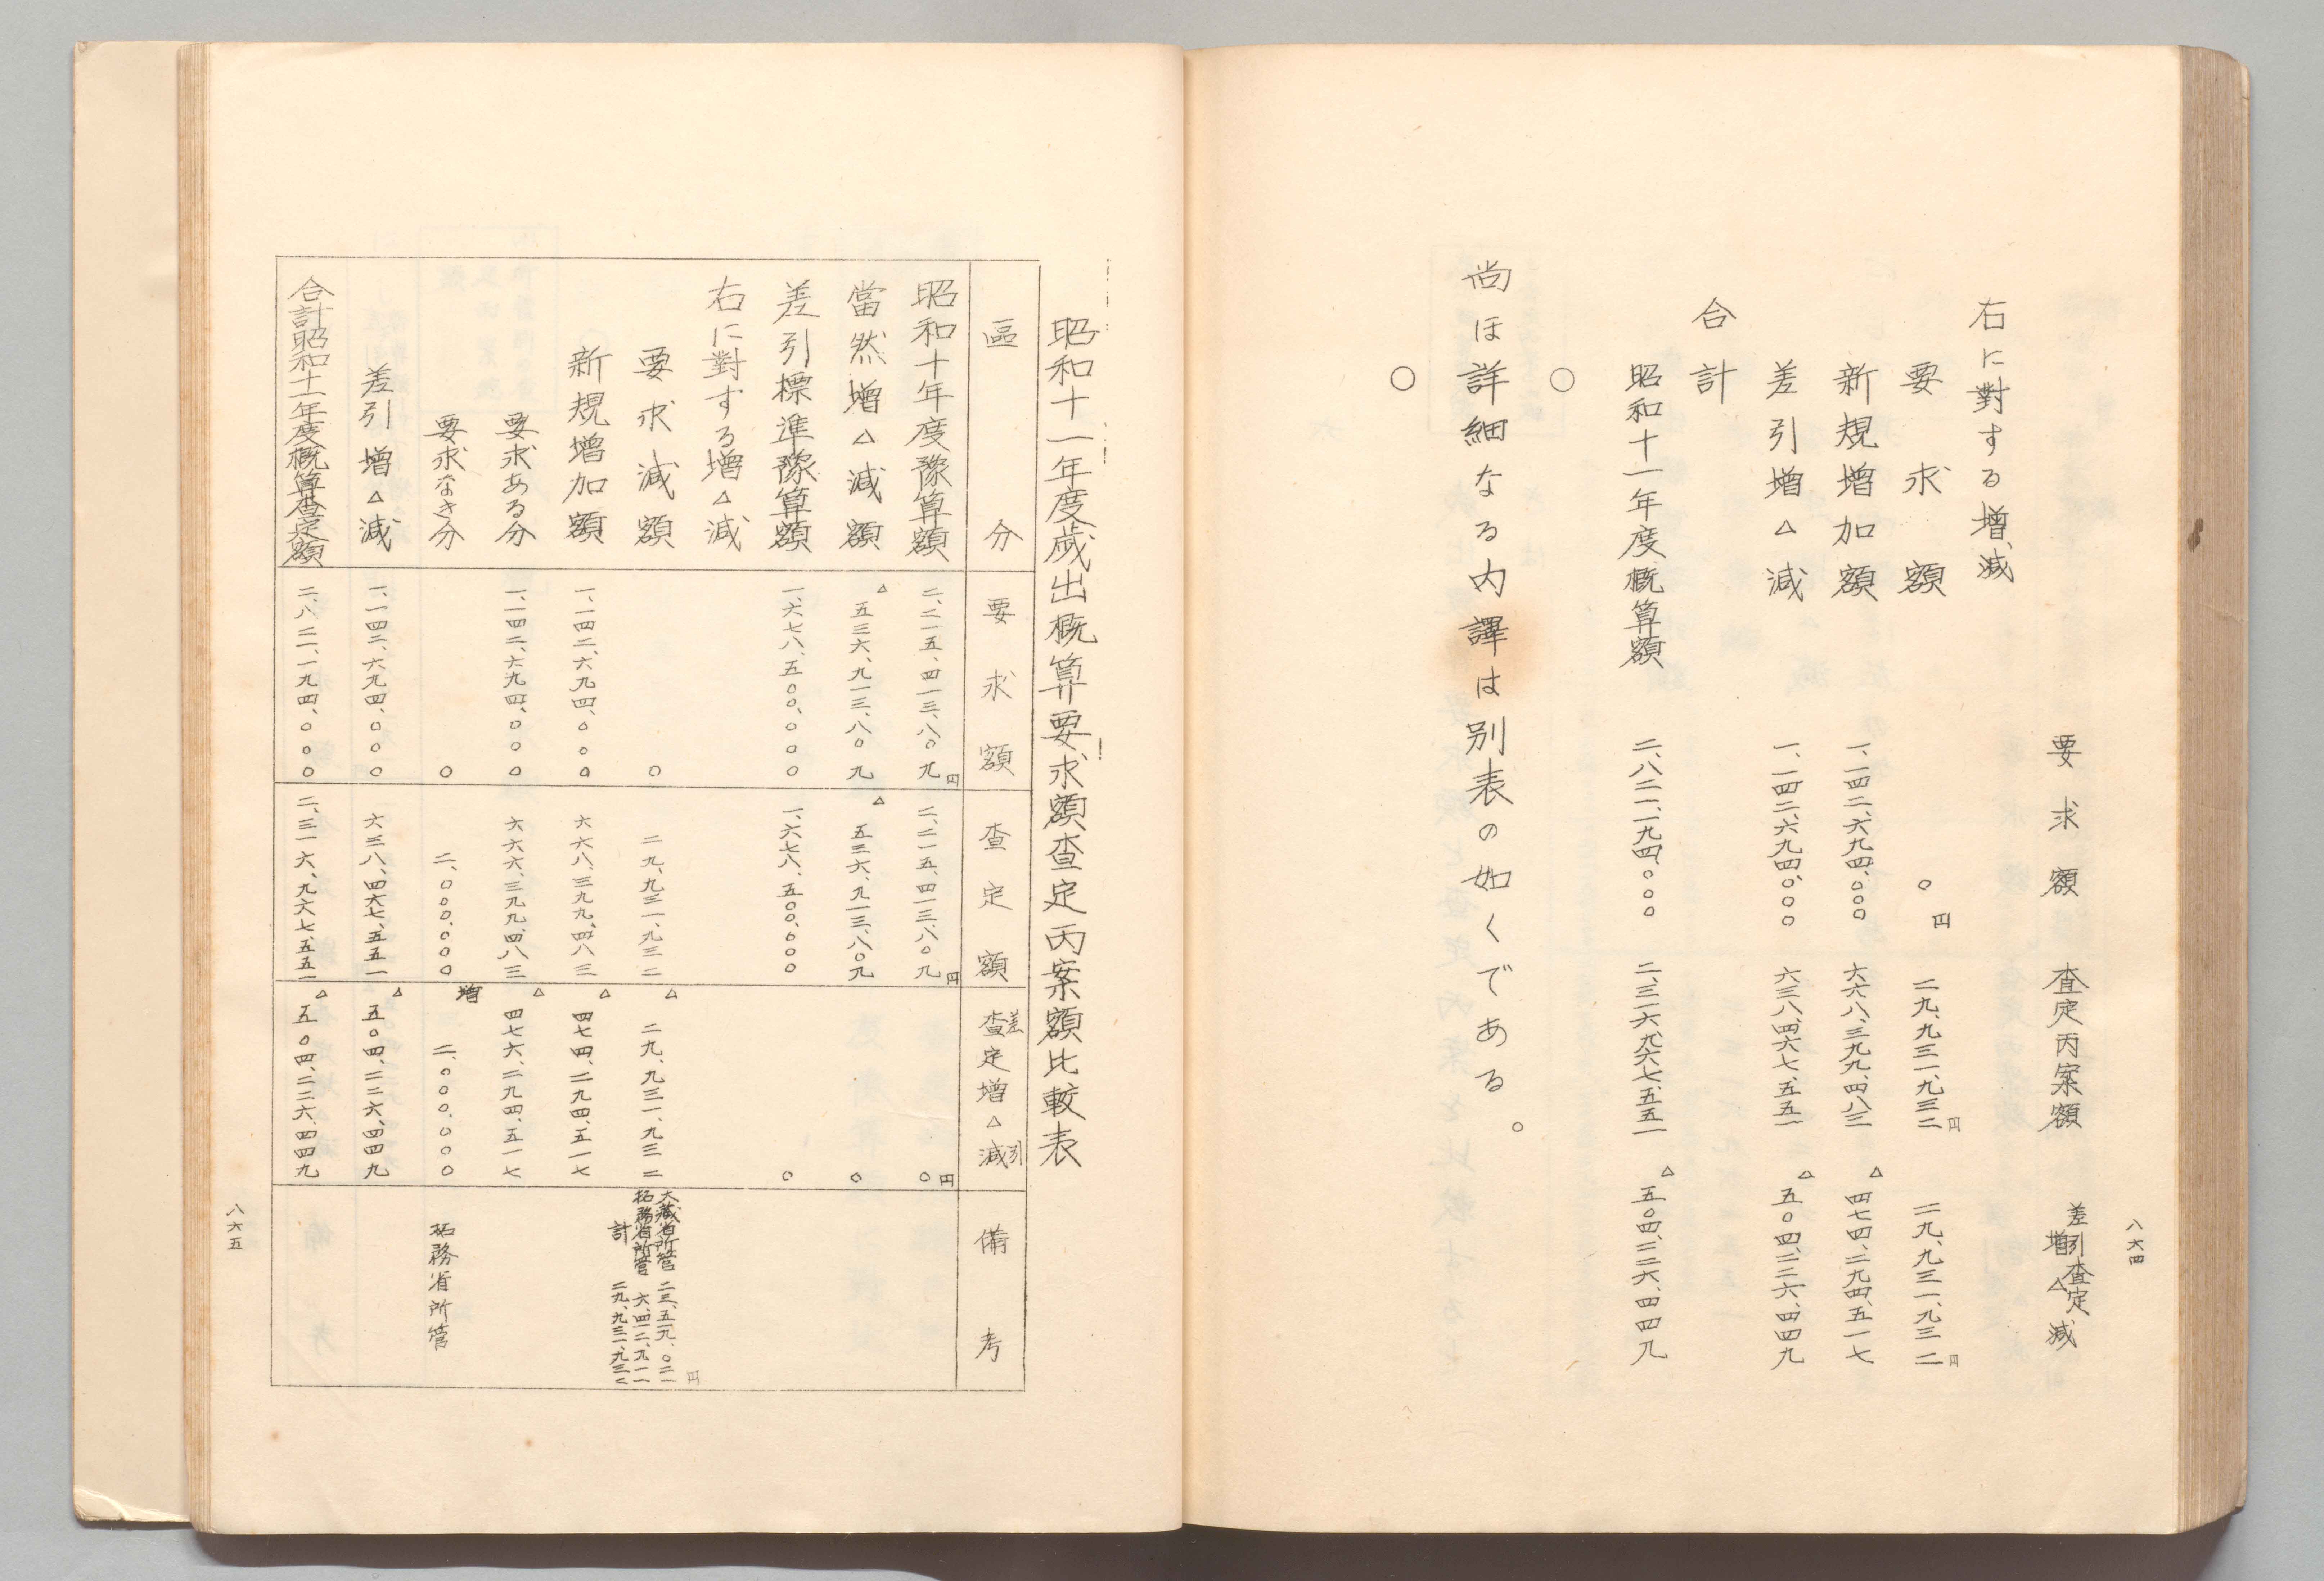 八六四
要求額　査定丙案額　差引査定増△減
右に對する増減
要求額　〇円　二九、九三一、九三二円　二九、九三一、九三二円
新規増加額　一、一四二、六九四、〇〇〇　六六八、三九九、四八三　△四七四、二九四、五一七
差引増△減　一、一四二、六九四、〇〇〇　六三八、四六七、五五一　△五〇四、二二六、四四九
合計
昭和十一年度概算額　二、八二一、一九四、〇〇〇　二、三一六、九六七、五五一　△五〇四、二二六、四四九
○
尚ほ詳細なる内譯は別表の如くである。
○
昭和十一年度歳出概算要求額査定丙案額比較表
區分　要求額　査定額　差引査定増△減　備考
昭和十年度豫算額　二、二一五、四一三、八〇九円　二、二一五、四一三、八〇九円　〇円
當然増△減額　△五三六、九一三、八〇九　△五三六、九一三、八〇九　〇
差引標準豫算額　一、六七八、五〇〇、〇〇〇　一、六七八、五〇〇、〇〇〇　〇
右に對する増△減
要求減額　〇　二九、九三一、九三二　△二九、九三一、九三二　大藏省所管　二三、五一九、〇二一円
拓務省所管　六、四一二、九一一
計　二九、九三一、九三二
新規増加額　一、一四二、六九四、〇〇〇　六六八、三九九、四八三　△四七四、二九四、五一七
要求ある分　一、一四二、六九四、〇〇〇　六六六、三九九、四八三　△四七六、二九四、五一七
要求なき分　〇　二、〇〇〇、〇〇〇　増二、〇〇〇、〇〇〇　拓務省所管
差引増△減　一、一四二、六九四、〇〇〇　六三八、四六七、五五一　△五〇四、二二六、四四九
合計昭和十一年度概算査定額　二、八二一、一九四、〇〇〇　二、三一六、九六七、五五一　△五〇四、二二六、四四九
八六五